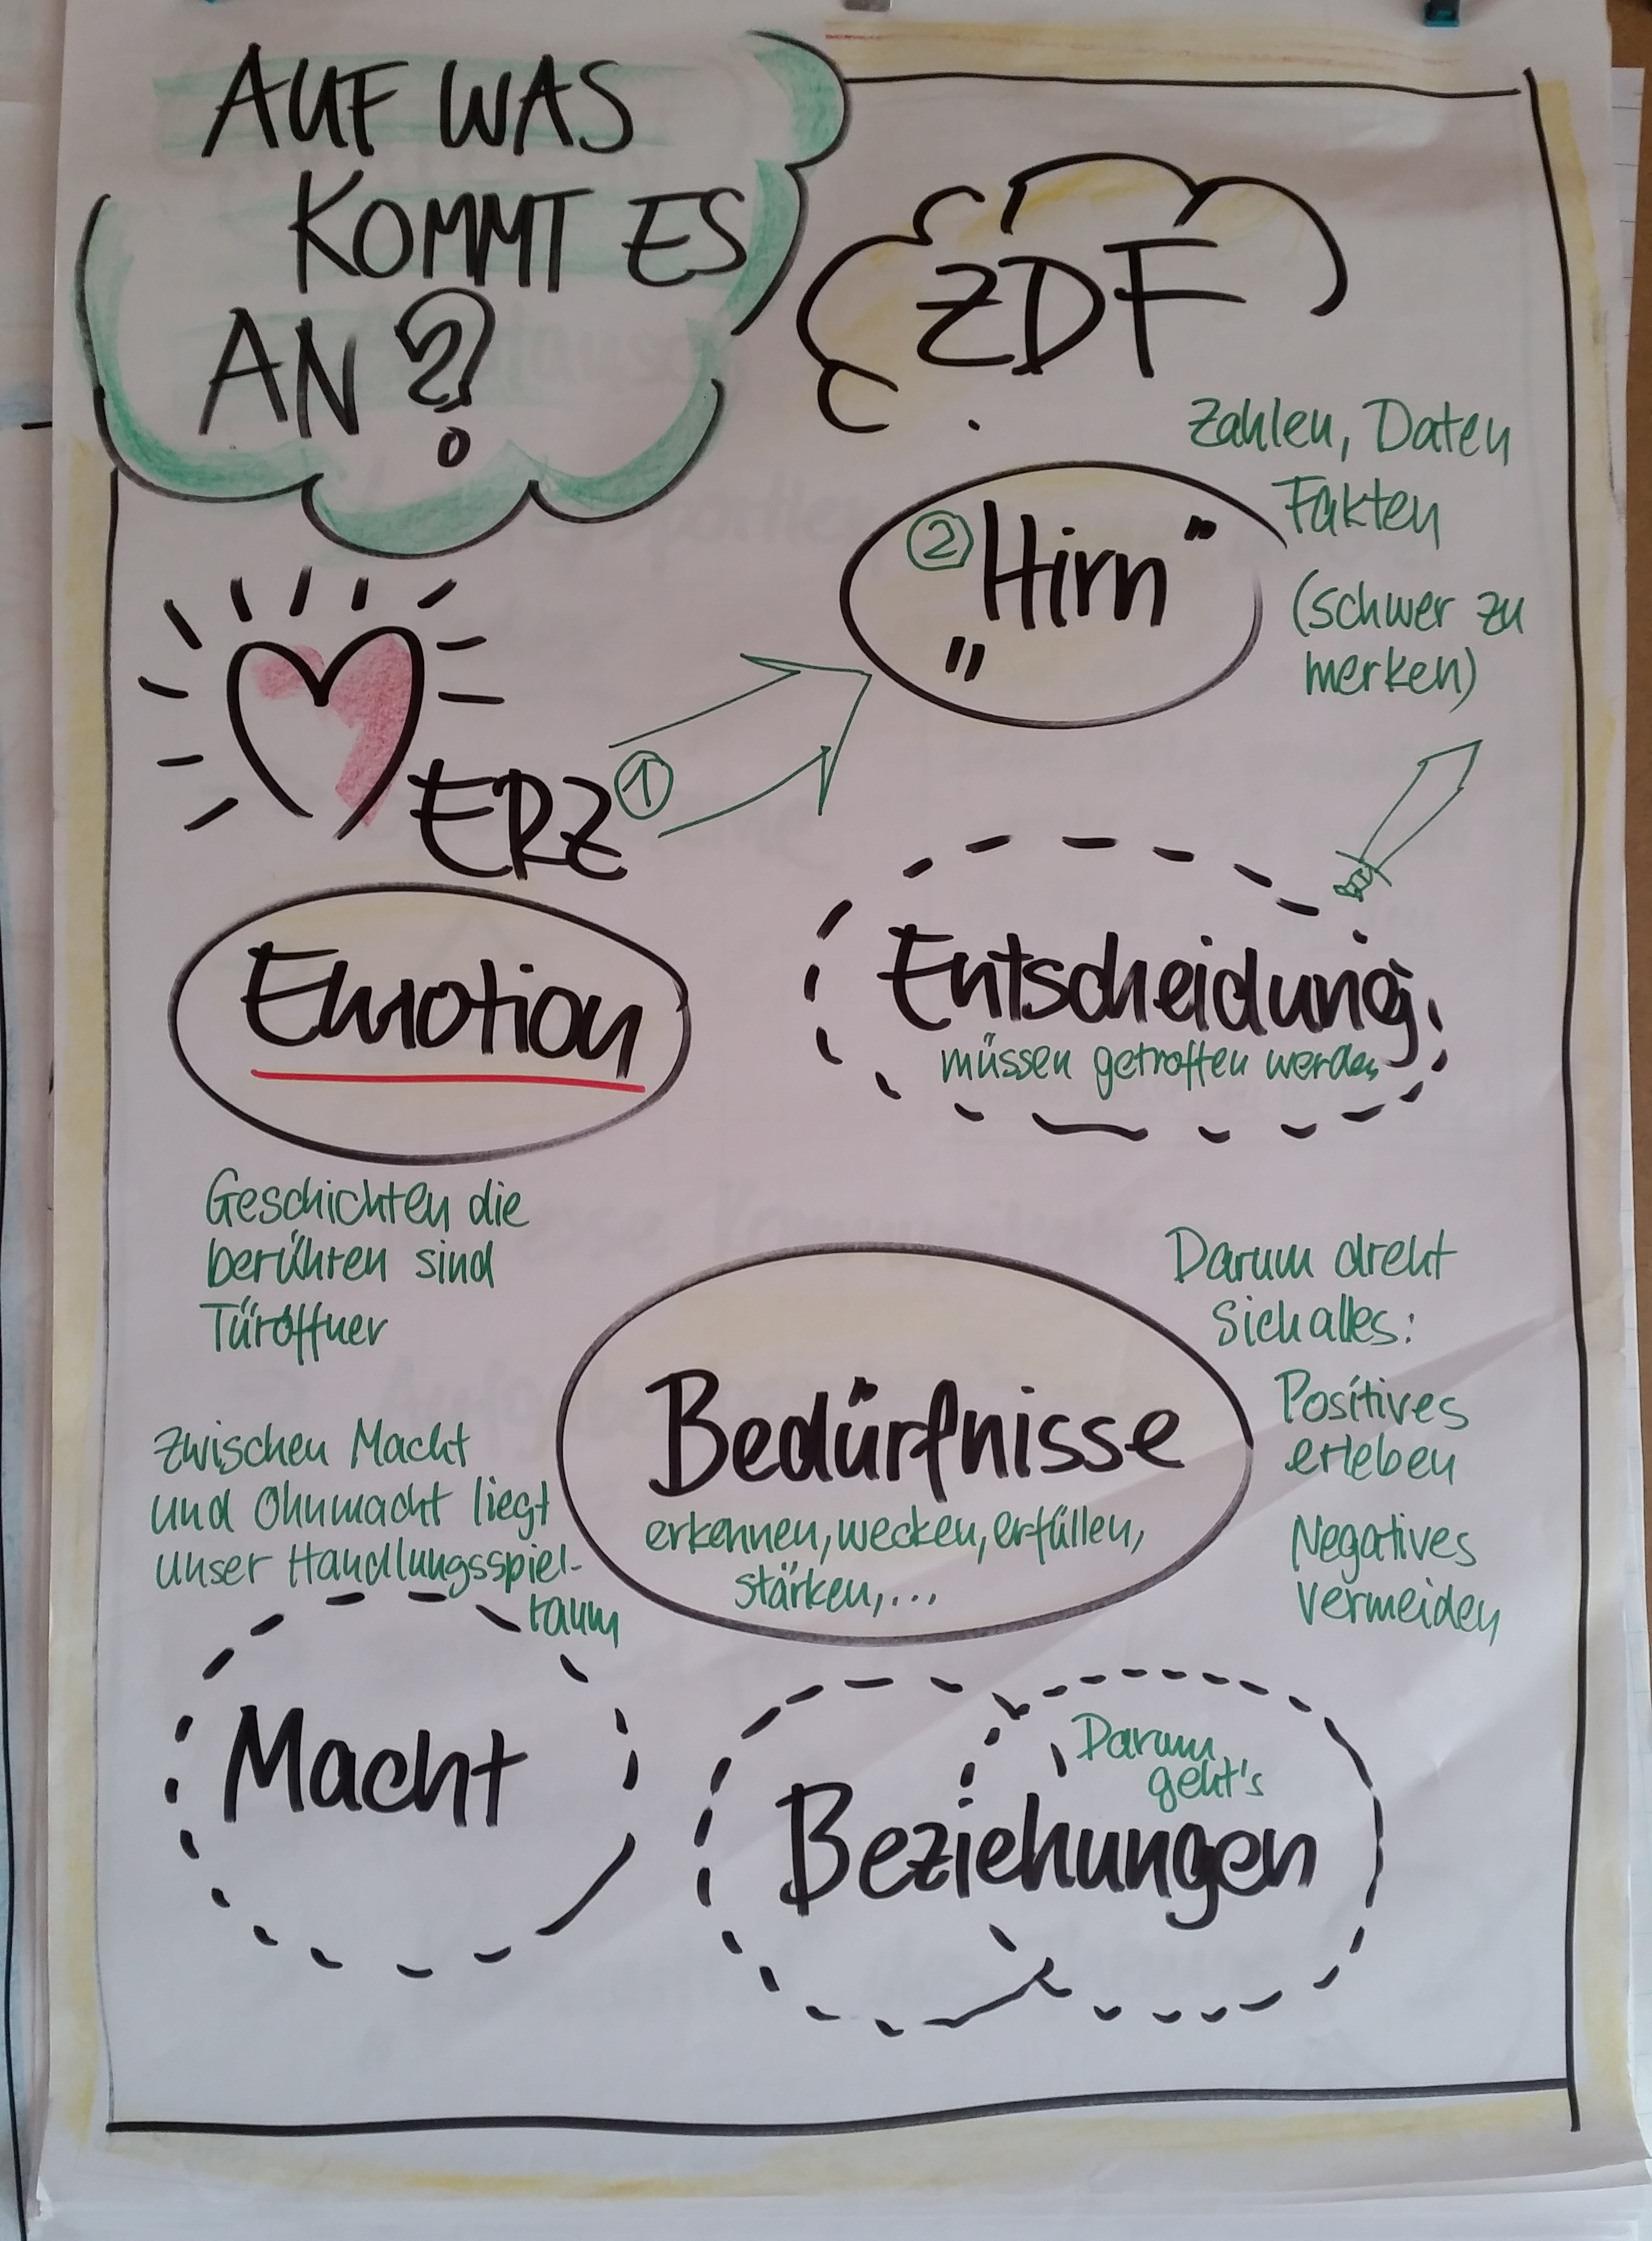 AUF WAS
KOMMT ES
AN?
ZDF
Zahlen, Daten
Fakten
(schwer zu
merken)
② „Hirn"
①
ERZ
Emotion
Entscheidung
müssen getroffen werden
Geschichten die
berühren sind
Türöffner
Darum dreht
sich alles:
Positives
erleben
Negatives
vermeiden
Bedürfnisse
erkennen, wecken, erfüllen,
stärken, ...
Zwischen Macht
und Ohnmacht liegt
unser Handlungsspiel-
raum
Macht
Darum
geht's
Beziehungen